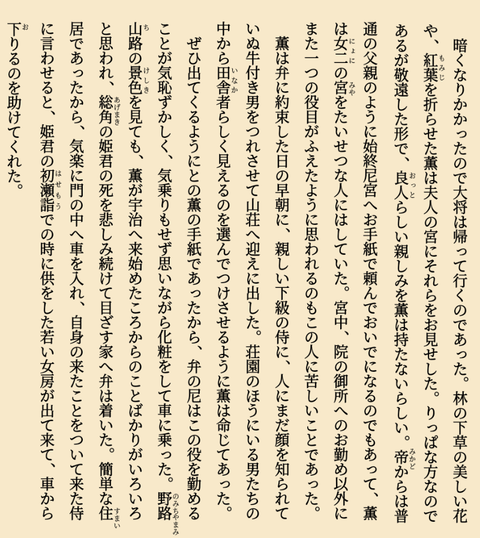 暗くなりかかったので大将は帰って行くのであった。林の下草の美しい花
や、紅葉を折らせた薫は夫人の宮にそれらをお見せした。りっぱな方なので
あるが敬遠した形で、良人らしい親しみを薫は持たないらしい。帝からは普
通の父親のように始終尼宮へお手紙で頼んでおいでになるのでもあって、薫
は女二の宮をたいせつな人にはしていた。宮中、院の御所へのお勤め以外に
また一つの役目がふえたように思われるのもこの人に苦しいことであった。
薫は弁に約束した日の早朝に、親しい下級の侍に、人にまだ顔を知られて
いぬ牛付き男をつれさせて山荘へ迎えに出した。荘園のほうにいる男たちの
中から田舎者らしく見えるのを選んでつけさせるように薫は命じてあった。
ぜひ出てくるようにとの薫の手紙であったから、弁の尼はこの役を勤める
ことが気恥ずかしく、気乗りもせず思いながら化粧をして車に乗った。野路
山路の景色を見ても、薫が宇治へ来始めたころからのことばかりがいろいろ
と思われ、総角の姫君の死を悲しみ続けて目ざす家へ弁は着いた。簡単な住
居であったから、気楽に門の中へ車を入れ、自身の来たことをついて来た侍
に言わせると、姫君の初瀬詣での時に供をした若い女房が出て来て、車から
下りるのを助けてくれた。